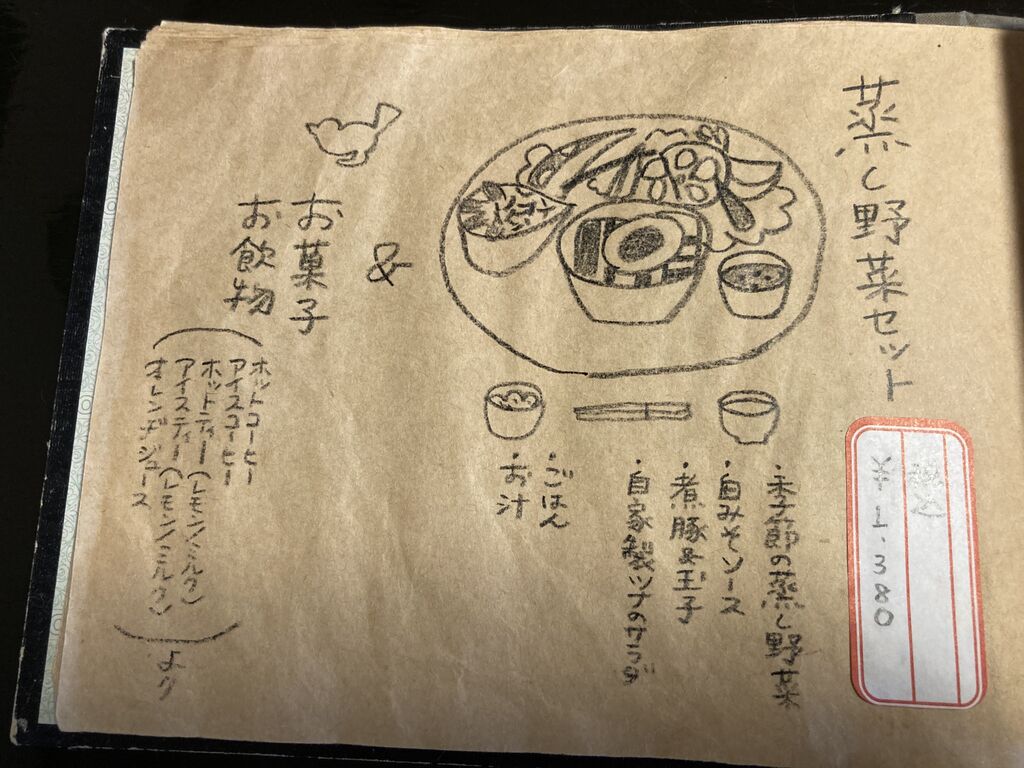 蒸し野菜セット
¥1.380
・季節の蒸し野菜
・白みそソース
・煮豚&玉子
・自家製ツナのサラダ
・ごはん
・お汁
&
お菓子
お飲物
(ホットコーヒー
アイスコーヒー
ホットティー(レモン/ミルク)
アイスティー(レモン/ミルク)
オレンヂジュース)より